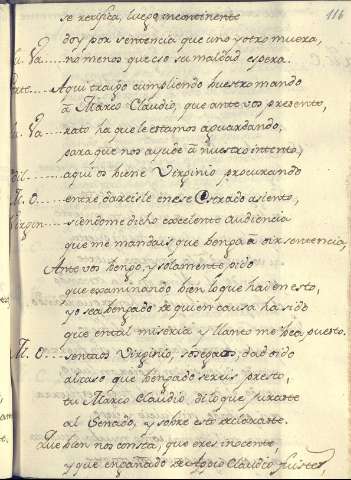 116
se verifica, luego incontinente
doy por sentencia que uno y otro muera,
no menos que eso su maldad espera.
Aqui traigo cumpliendo vuestro mando
à Marco Claudio, que ante vos presento,
rato ha que le estamos aguardando,
para que nos ayude à nuestro intento,
aqui os biene Virginio procurando
entre dareisle en ese Estrado asiento,
siendome dicho excelente audiencia
que me mandais que benga a oir sentencia,
Ante vos bengo, y solamente pido
que examinando bien lo que hai en esto,
y sea bengado de quien causa ha sido
que en tal miseria y llanto me vea puesto.
sentaos Virginio, sosegaos, dad oido
al caso que bengado sereis presto,
tu Marco Claudio, di lo que juraste
al Senado, y sobre esto
Que bien nos consta, que eres inocente,
y que engañado de Apio Claudio fuistes,